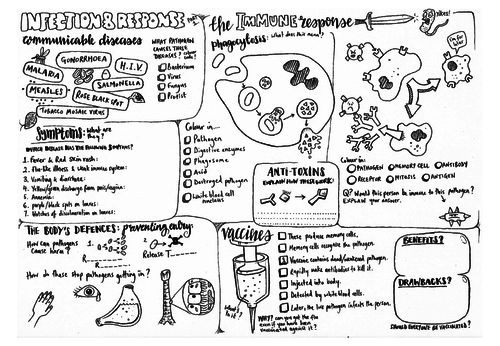 INFECTION & RESPONSE
communicable diseases
GONORRHOEA
H.I.V.
MALARIA
SALMONELLA
MEASLES
ROSE BLACK SPOT
TOBACCO MOSAIC VIRUS
WHAT PATHOGEN
CAUSES THESE
DISEASES?
Bacterium
Virus
Fungus
Protist
Symptoms: what are they?
WHICH DISEASE HAS THE FOLLOWING SYMPTOMS?
1. Fever & Red skin rash:
2. Flu-like illness & weak immune system:
3. Vomiting & diarrhea:
4. Yellow/green discharge from penis/vagina:
5. Anaemia:
6. purple/black spots on leaves:
7. Patches of discolouration on leaves:
the IMMUNE response
phagocytosis: what does this mean?
Colour in...
Pathogen
Digestive enzymes
Phagosome
Acid
Destroyed pathogen
White blood cell nucleus
ANTI-TOXINS
EXPLAIN HOW THESE WORK:
Yikes!
Colour in:
PATHOGEN
MEMORY CELL
ANTIBODY
RECEPTOR
MITOSIS
ANTIGEN
Q? Would this person be immune to this pathogen?
EXPLAIN your answer.
THE BODY'S DEFENCES: preventing entry:
How can pathogens
cause harm?
1.
R
R
2.
Release T
How do these stop pathogens getting in?
vaccines
What is it?
These produce memory cells.
Memory cells recognise the pathogen.
Vaccine contains dead/weakened pathogen.
Rapidly make antibodies to kill it.
Injected into body.
Detected by white blood cells.
Later, the live pathogen infects the person.
WHY? can you get the flu
even if you have been
vaccinated against it?
BENEFITS?
DRAWBACKS?
SHOULD EVERYONE BE VACCINATED?